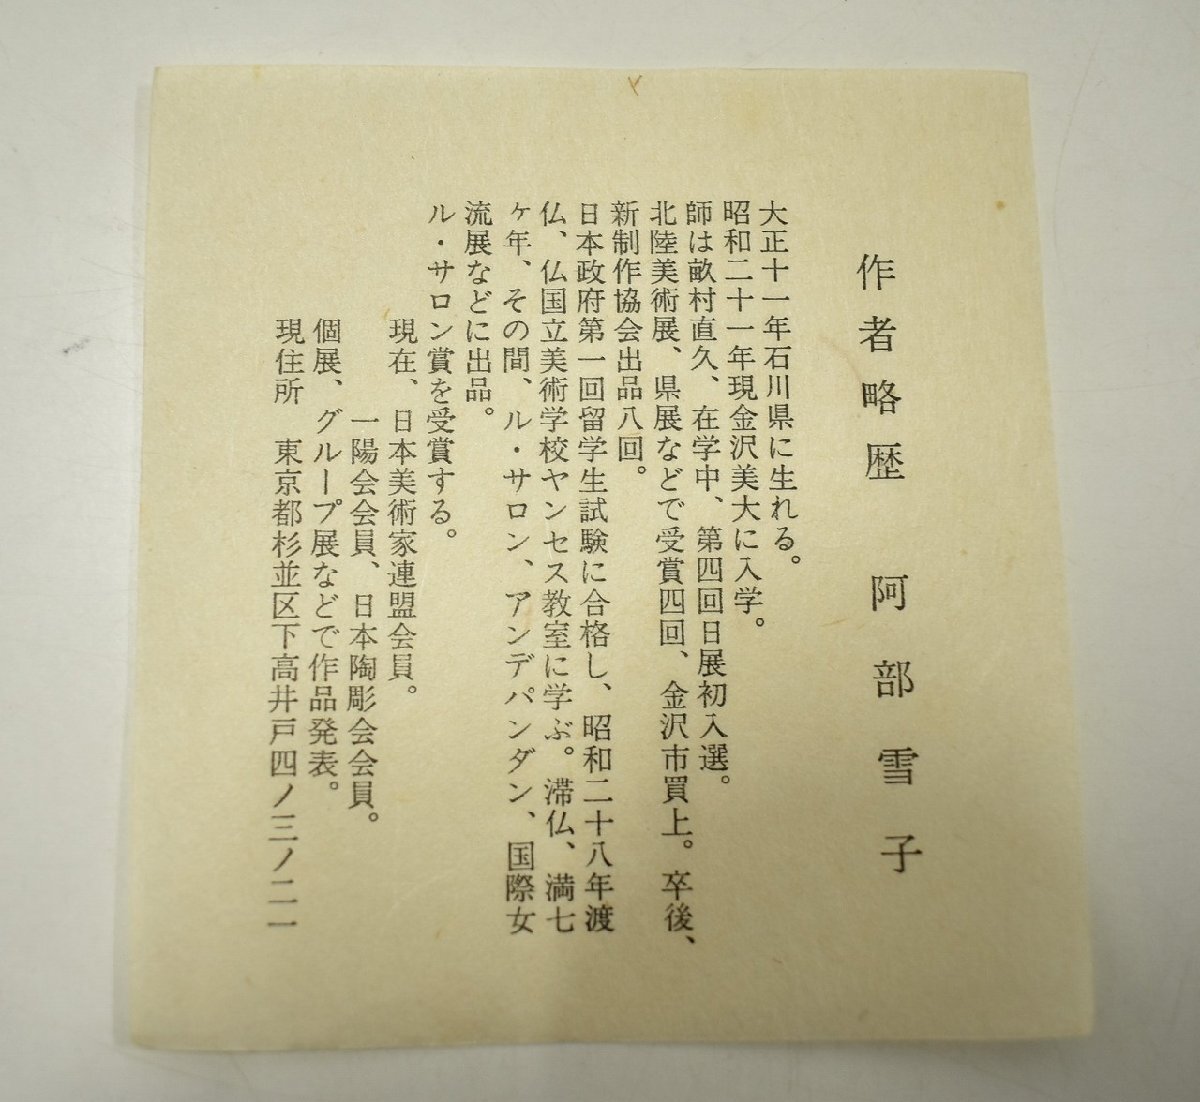 作者略歴　阿部雪子
大正十一年石川県に生れる。
昭和二十一年現金沢美大に入学。
師は畝村直久、在学中、第四回日展初入選。
北陸美術展、県展などで受賞四回、金沢市買上。卒後、
新制作協会出品八回。
日本政府第一回留学生試験に合格し、昭和二十八年渡
仏、仏国立美術学校ヤンセス教室に学ぶ。滞仏、満七
ヶ年、その間、ル・サロン、アンデパンダン、国際女
流展などに出品。
ル・サロン賞を受賞する。
現在、日本美術家連盟会員。
一陽会会員、日本陶彫会会員。
個展、グループ展などで作品発表。
現住所　東京都杉並区下高井戸四ノ三ノ二一